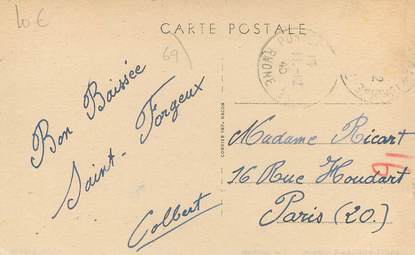 10 €
CARTE POSTALE
69
Bon Baissée
Saint-Forgeux
Colbert
Madame Ricart
16 Rue Houdart
Paris (20.)
16
RHONE